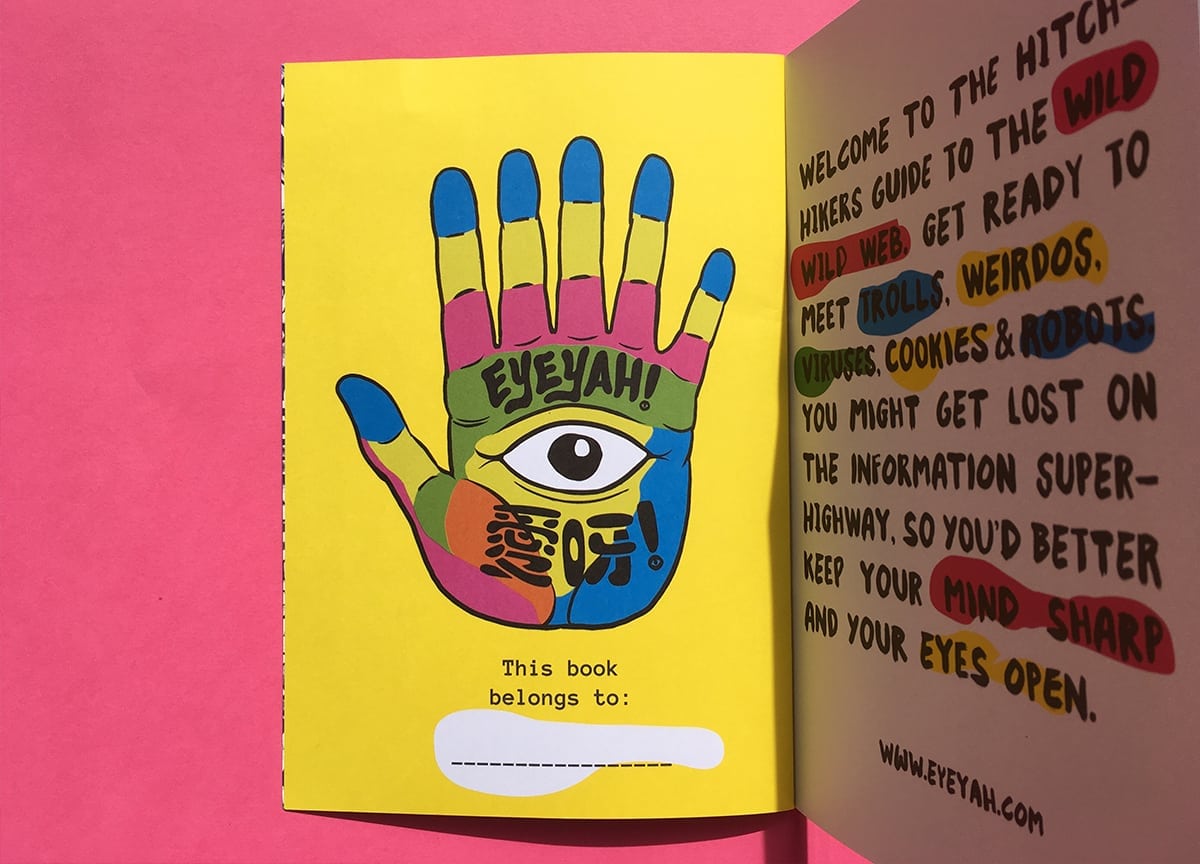 EYEYAH!
This book
belongs to:
WELCOME TO THE HITCH-
HIKERS GUIDE TO THE WILD
WILD WEB. GET READY TO
MEET TROLLS, WEIRDOS,
VIRUSES, COOKIES & ROBOTS.
YOU MIGHT GET LOST ON
THE INFORMATION SUPER-
HIGHWAY, SO YOU'D BETTER
KEEP YOUR MIND SHARP
AND YOUR EYES OPEN.
WWW.EYEYAH.COM